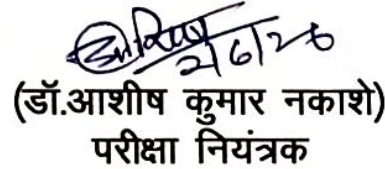 2/6/26
(डॉ.आशीष कुमार नकाशे)
परीक्षा नियंत्रक